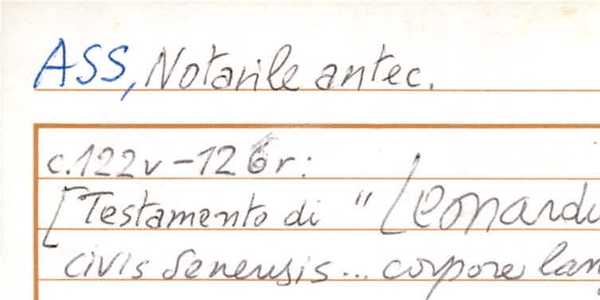 ASS, Notarile antec.
c.122v-126r:
[Testamento di "Leonardu
civis Senensis... corpore lan